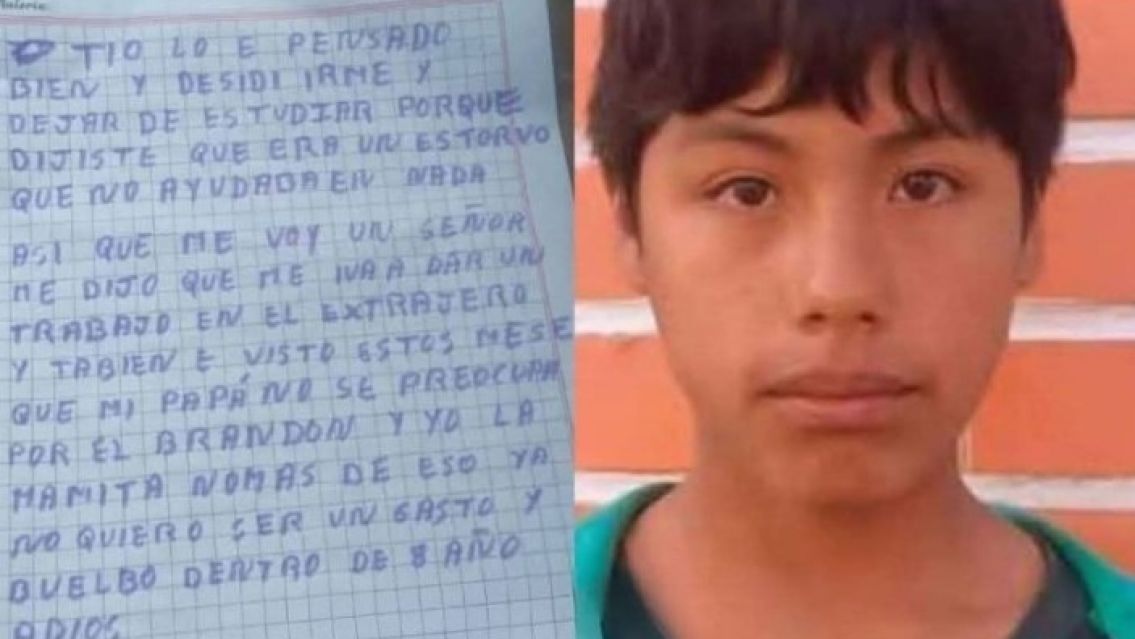 TIO LO E PENSADO
BIEN Y DESIDI IRME Y
DEJAR DE ESTUDIAR PORQUE
DIJISTE QUE ERA UN ESTORVO
QUE NO AYUDADA EN NADA
ASI QUE ME VOY UN SEÑOR
ME DIJO QUE ME IVA A DAR UN
TRABAJO EN EL EXTRAJERO
Y TABIEN E VISTO ESTOS MESE
QUE MI PAPÁ NO SE PREOCUPA
POR EL BRANDON Y YO LA
MAMITA NOMAS DE ESO YA
NO QUIERO SER UN GASTO Y
BUELBO DENTRO DE 8 AÑO
ADIOS